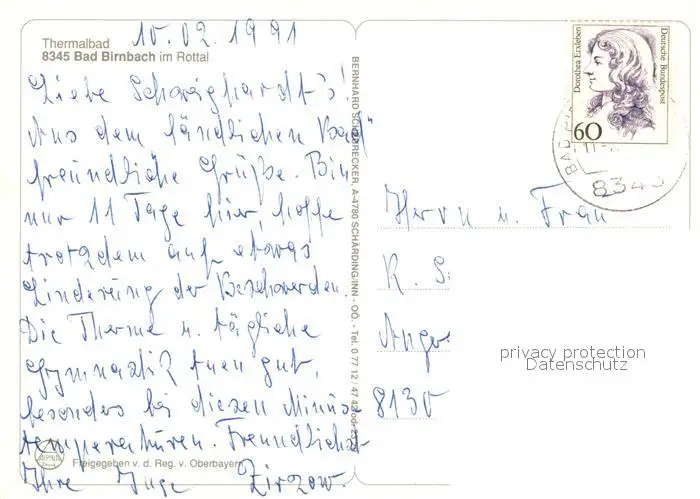 10.02.1991
Thermalbad
8345 Bad Birnbach im Rottal
Liebe Schweighardt's!
Aus dem "ländlichen Bad"
freundliche Grüße. Bin
nur 11 Tage hier, hoffe
trotzdem auf etwas
Linderung der Beschwerden.
Die Therme u. tägliche
Gymnastik tuen gut,
besonders bei diesen Minus-
temperaturen. Freundlichst
Ihre Inge Zirzow.
Freigegeben v. d. Reg. v. Oberbayern
BERNHARD A-4780 SCHÄRDING/INN - OÖ. - Tel. 0 77 12 / 47 42
Dorothea Erxleben
Deutsche Bundespost
60
BAD
8345
Herrn u. Frau
R. S
Ange
8130
privacy protection
Datenschutz